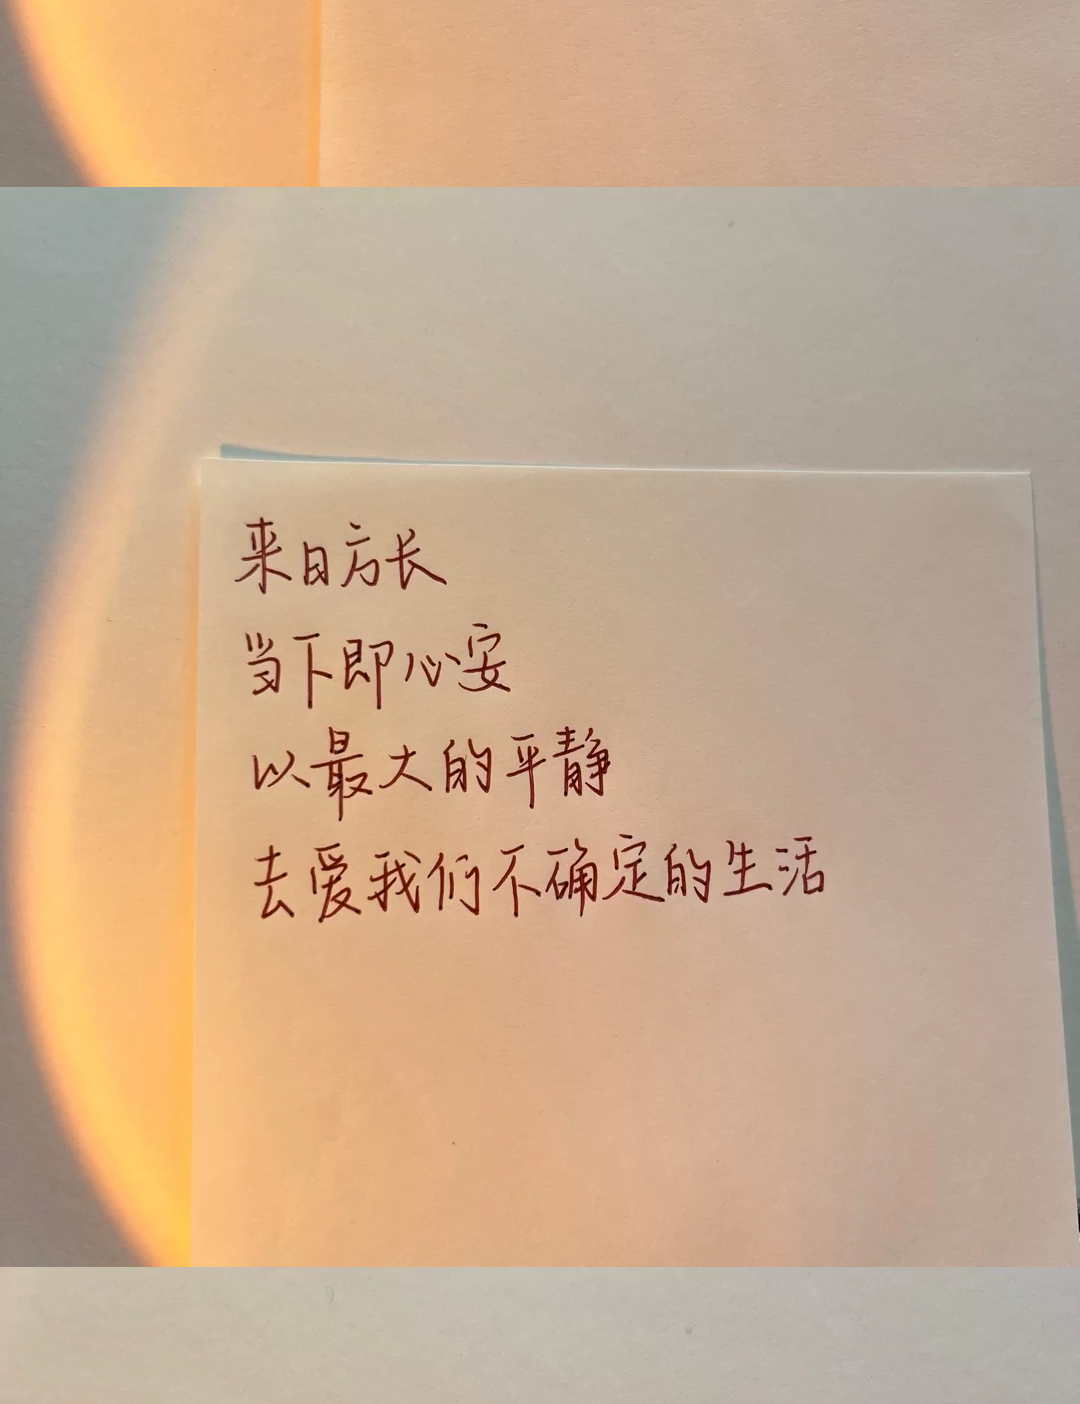 来日方长
当下即心安
以最大的平静
去爱我们不确定的生活